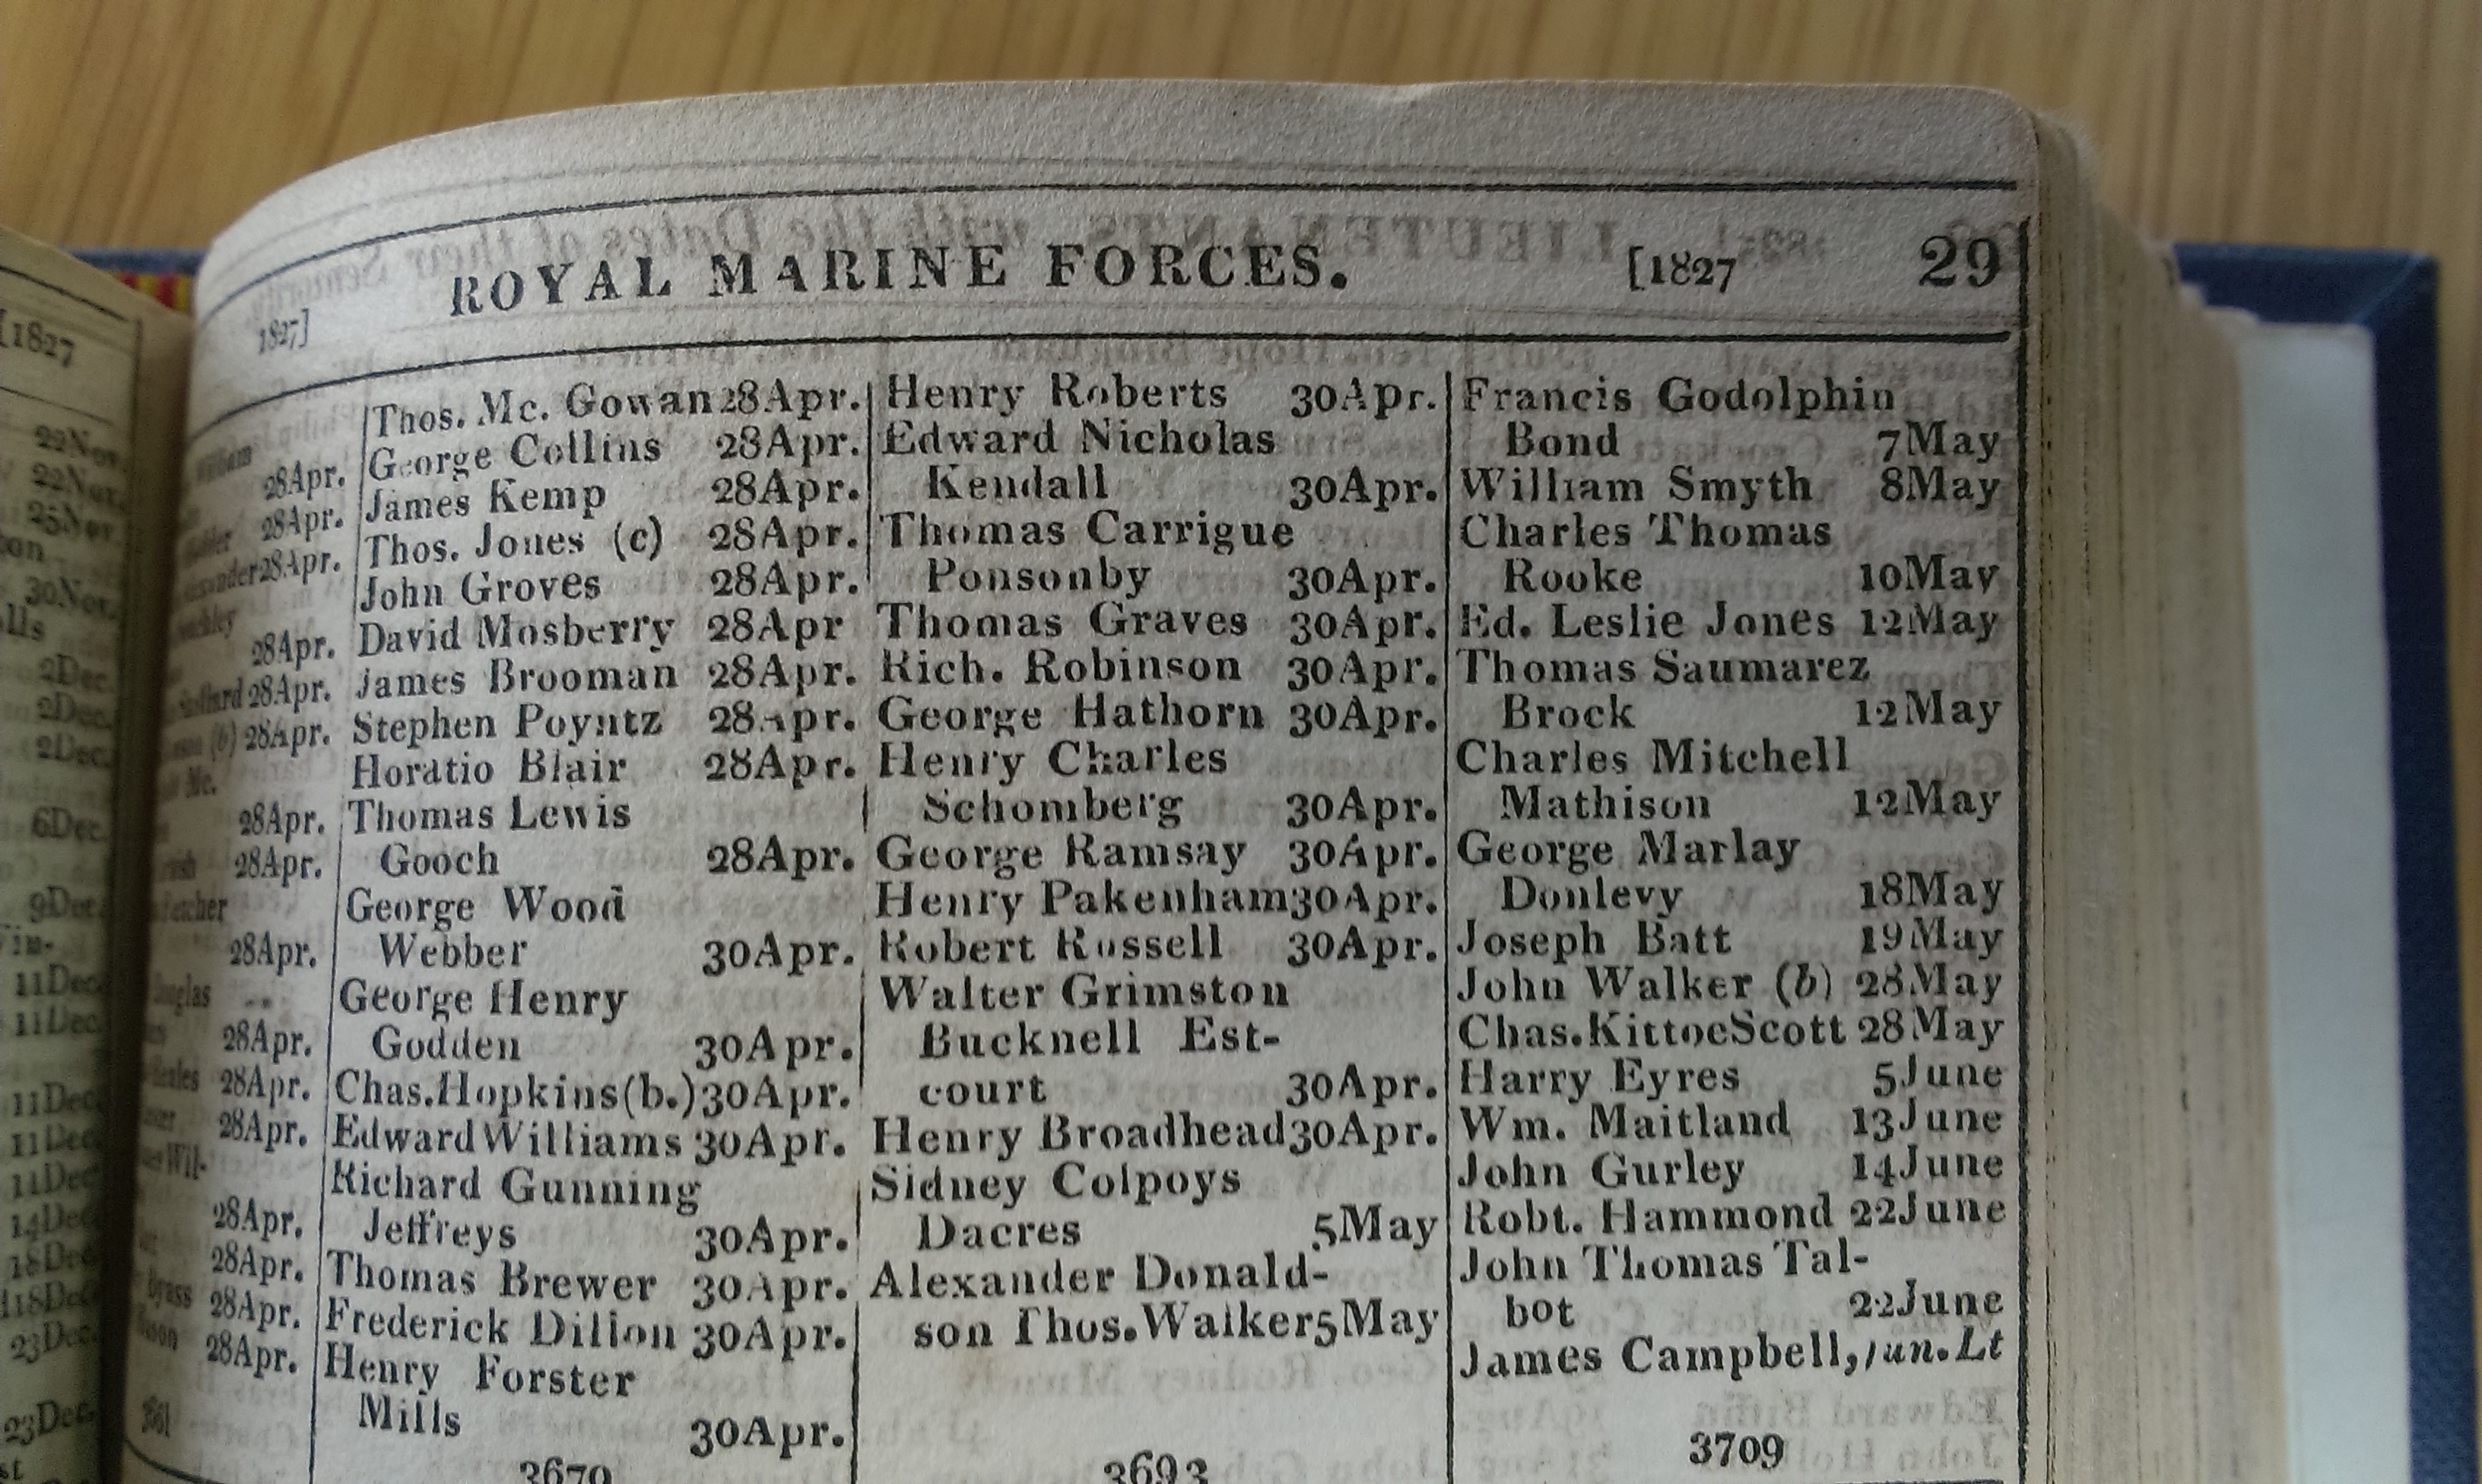 ROYAL MARINE FORCES. [1827 29
1827]
[1827
29Nov.
22Nov.
25Nov.
30Nov.
2Dec.
2Dec.
2Dec.
6Dec.
9Dec.
11Dec.
11Dec.
11Dec.
11Dec.
11Dec.
14Dec
18Dec
18Dec
23Dec.
23Dec.
William
28Apr.
28Apr.
28Apr.
28Apr.
28Apr.
(b) 28Apr.
Mc.
28Apr.
28Apr.
28Apr.
28Apr.
28Apr.
28Apr.
28Apr.
28Apr.
28Apr.
28Apr.
Thos. Mc. Gowan 28Apr.
George Collins 28Apr.
James Kemp 28Apr.
Thos. Jones (c) 28Apr.
John Groves 28Apr.
David Mosberry 28Apr
James Brooman 28Apr.
Stephen Poyntz 28Apr.
Horatio Blair 28Apr.
Thomas Lewis
Gooch 28Apr.
George Wood
Webber 30Apr.
George Henry
Godden 30Apr.
Chas.Hopkins(b.)30Apr.
Edward Williams 30Apr.
Richard Gunning
Jeffreys 30Apr.
Thomas Brewer 30Apr.
Frederick Dillon 30Apr.
Henry Forster
Mills 30Apr.
3670
Henry Roberts 30Apr.
Edward Nicholas
Kendall 30Apr.
Thomas Carrigue
Ponsonby 30Apr.
Thomas Graves 30Apr.
Rich. Robinson 30Apr.
George Hathorn 30Apr.
Henry Charles
Schomberg 30Apr.
George Ramsay 30Apr.
Henry Pakenham30Apr.
Robert Russell 30Apr.
Walter Grimston
Bucknell Est-
court 30Apr.
Henry Broadhead30Apr.
Sidney Colpoys
Dacres 5May
Alexander Donald-
son Thos.Walker5May
3693
Francis Godolphin
Bond 7May
William Smyth 8May
Charles Thomas
Rooke 10May
Ed. Leslie Jones 12May
Thomas Saumarez
Brock 12May
Charles Mitchell
Mathison 12May
George Marlay
Donlevy 18May
Joseph Batt 19May
John Walker (b) 28May
Chas.KittoeScott 28May
Harry Eyres 5June
Wm. Maitland 13June
John Gurley 14June
Robt. Hammond 22June
John Thomas Tal-
bot 22June
James Campbell,jun.Lt
3709